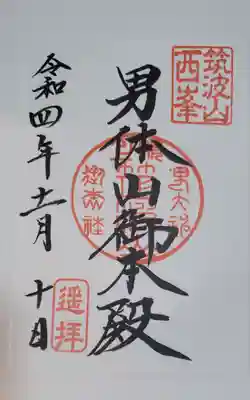 筑波山
西峯
男体山御本殿
令和四年十一月
十日
遥拝